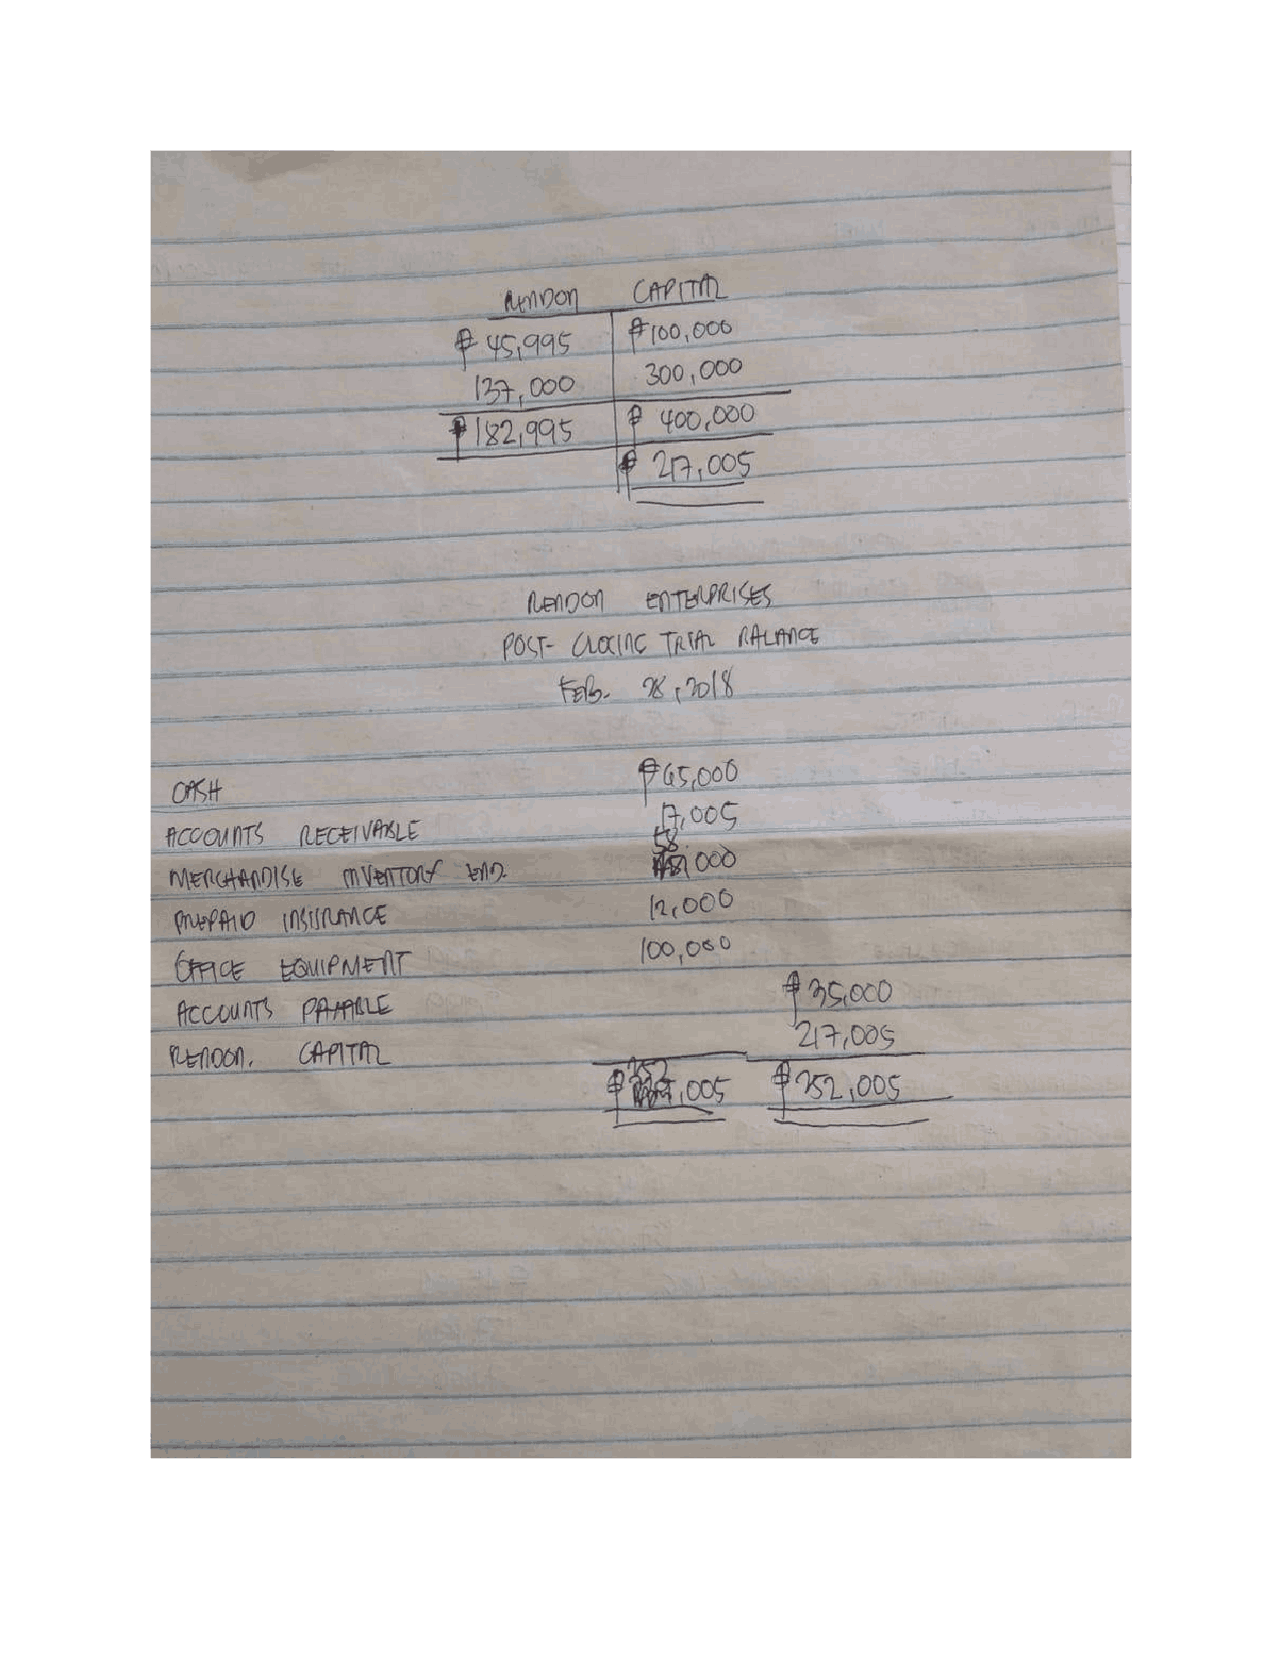 RENDON CAPITAL
₱ 45,995 ₱100,000
137,000 300,000
₱182,995 ₱ 400,000
₱ 217,005
RENDON ENTERPRISES
POST- CLOSING TRIAL BALANCE
FEB. 28, 2018
CASH ₱65,000
ACCOUNTS RECEIVABLE 17,005
58
MERCHANDISE INVENTORY END. ,000
PREPAID INSURANCE 12,000
OFFICE EQUIPMENT 100,000
ACCOUNTS PAYABLE ₱ 35,000
RENDON, CAPITAL 217,005
252
₱ ,005 ₱252,005